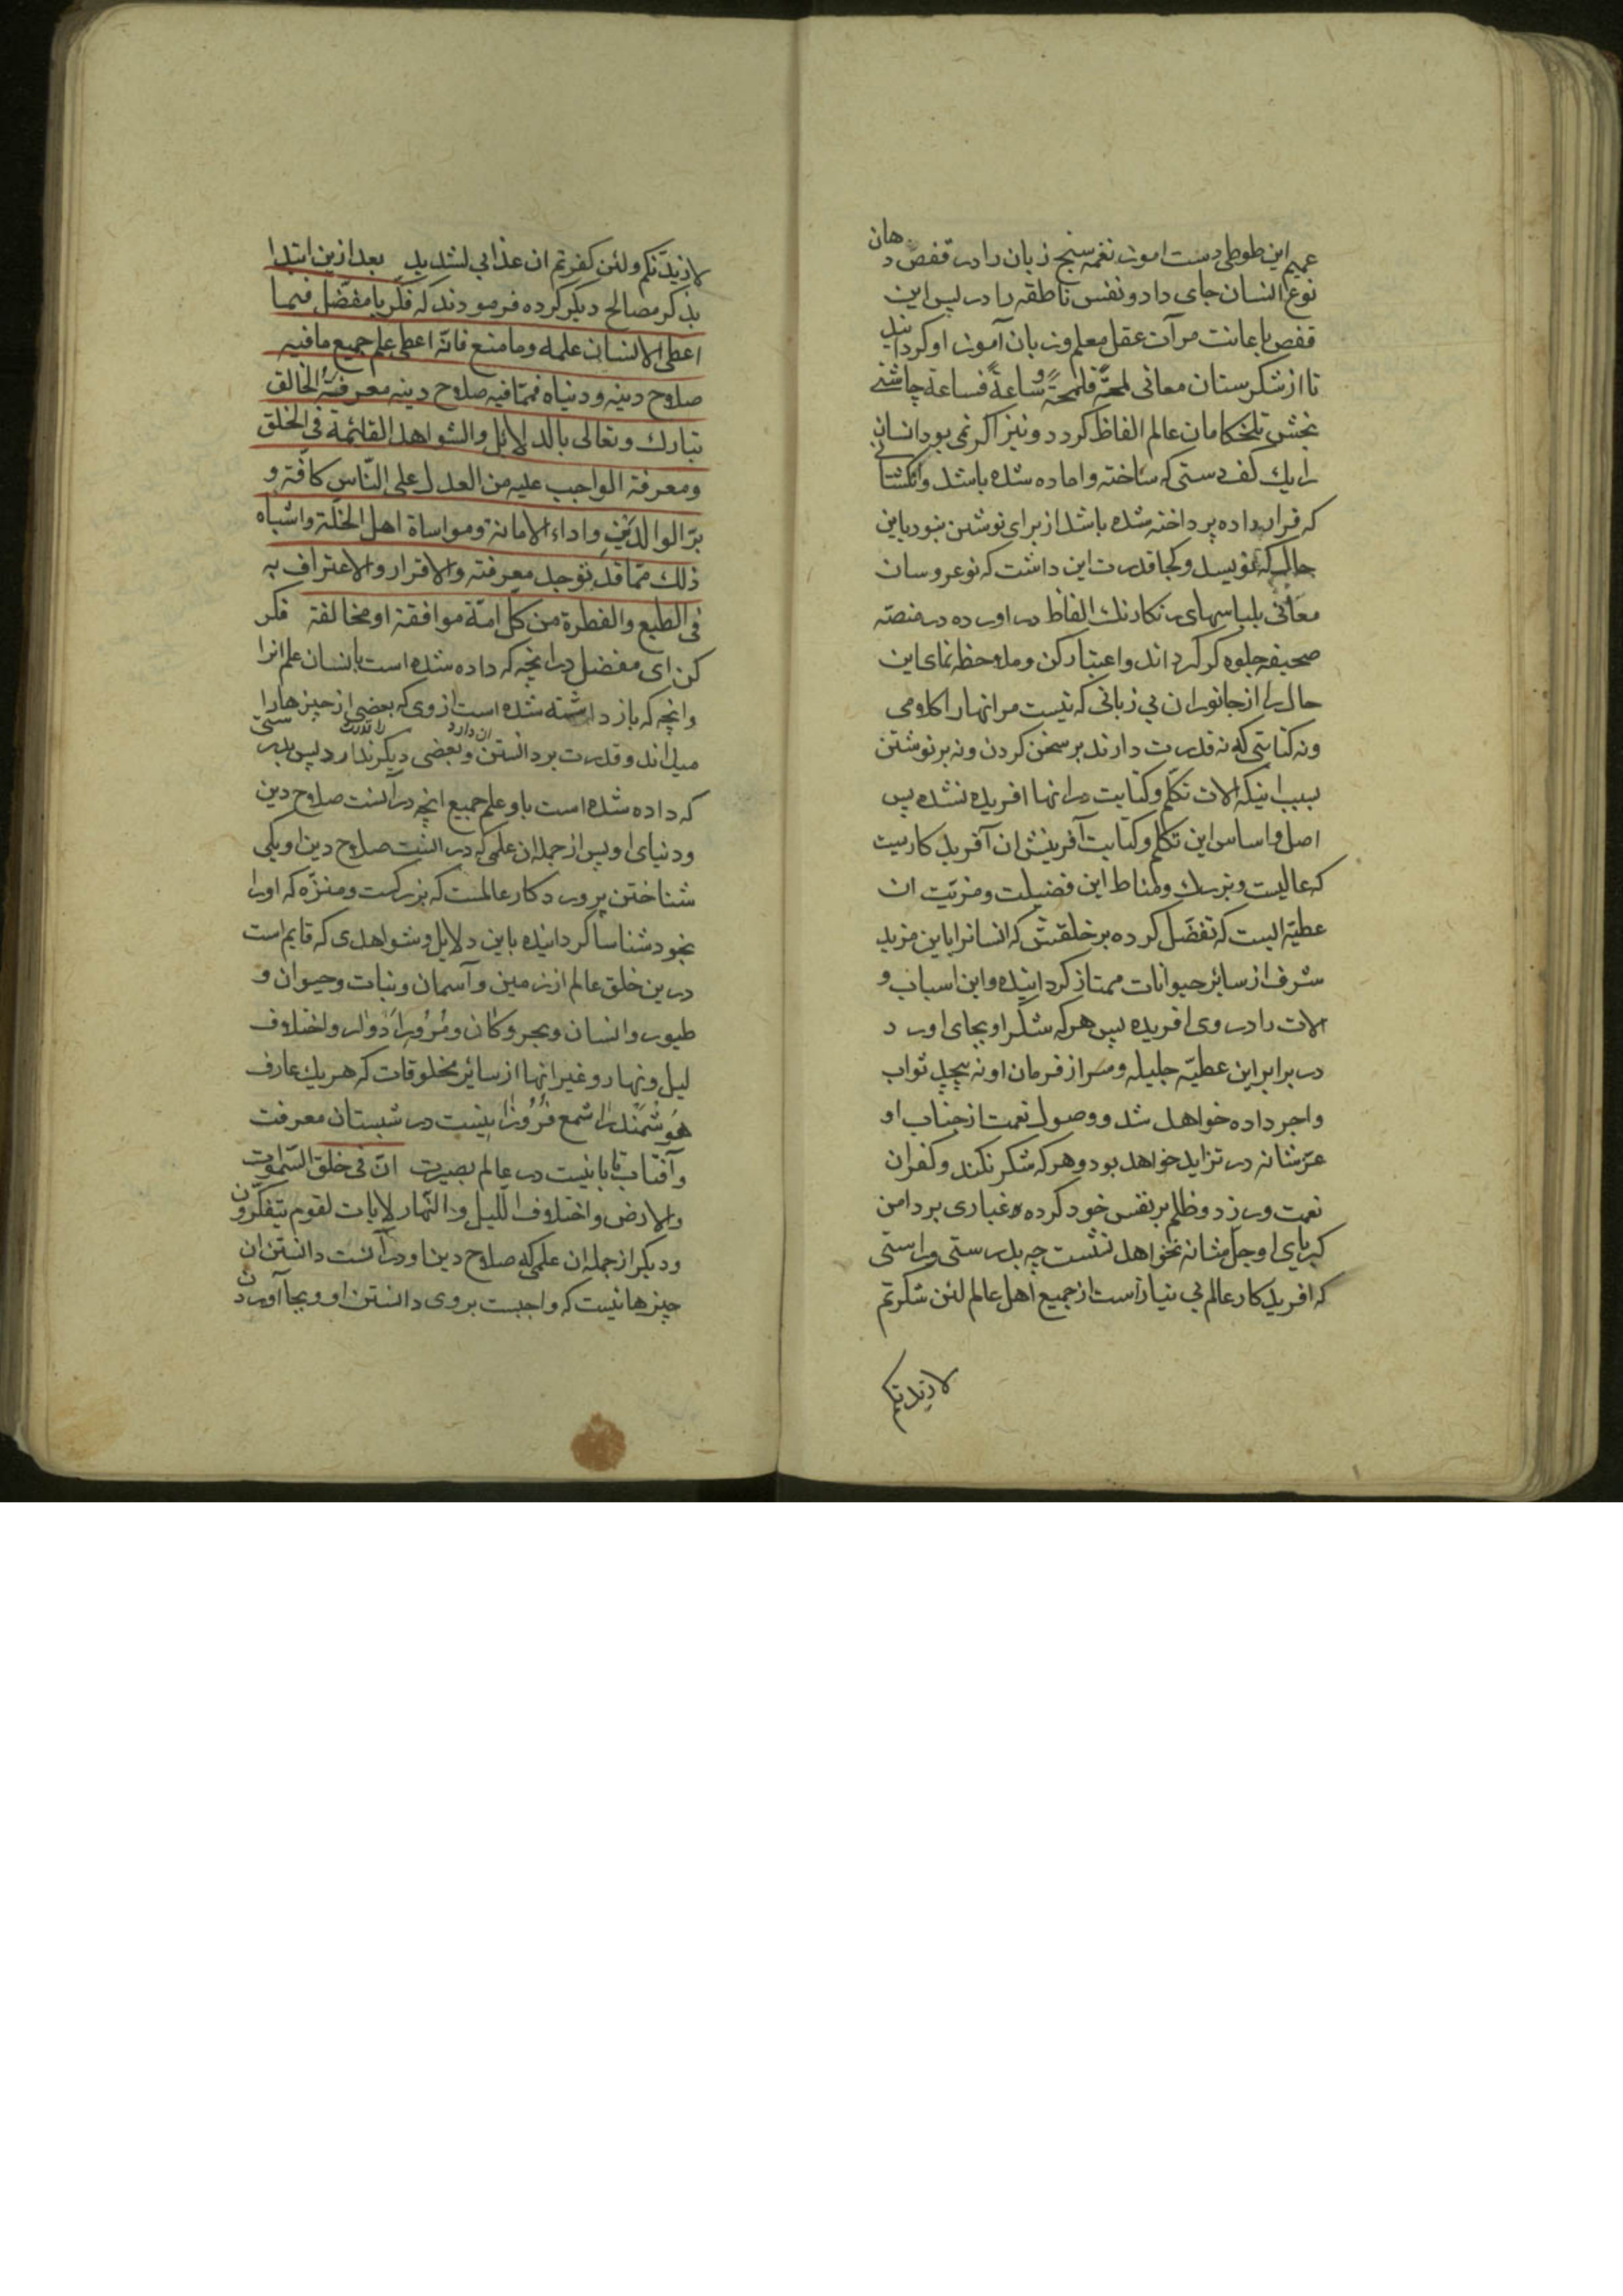 عمیم این طوطی دست اموز نغمه سنج زبان را در قفص دهان
نوع انسان جای داد و نفس ناطقه را در پس این
قفص باعانت مرآت عقل معلم و زبان آموز او کردانید
تا از شکرستان معانی لمحةً فلمحةً و ساعةً فساعة چاشنی
بخش تلخکامان عالم الفاظ کردد و نیز اکر نمی بود انسان
را یك کف دستی که ساخته و اماده شده باشد و انکشتانی
که قرار داده پرداخته شده باشد از برای نوشتن نبود باین
حال که بنویسد و کجا قدرت این داشت که نوعروسان
معانی بلباسهای رنکارنك الفاظ در اورده در منصّه
صحیفه جلوه کر کرداند و اعتبار کن و ملاحظه نمای این
حال را از جانوران بی زبانی که نیست مر انها را کلامی
و نه کتابتی که نه قدرت دارند بر سخن کردن و نه بر نوشتن
بسبب اینکه الات تکلّم و کتابت در انها افریده نشده پس
اصل و اساس این تکلم و کتابت آفرینش ان آفریدکاریست
که عالیست و بزرك و مناط این فضیلت و مزیّت ان
عطیّه ایست که تفضّل کرده بر خلقش که انسانرا باین مزید
شرف از سائر حیوانات ممتاز کردانیده و این اسباب و
الات را در وی افریده پس هر که شکر او بجای اورد
در برابر این عطیّه جلیله و سر از فرمان او نه پیچد ثواب
و اجر داده خواهد شد و وصول نعمت از جناب او
عزّ شانه در تزاید خواهد بود و هر که شکر نکند و کفران
نعمت ورزد و ظلم بر نفس خود کرده و غباری بر دامن
کبریای او جلّ شانه نخواهد نشست چه بدرستی و راستی
که افریدکار عالم بی نیاز است از جمیع اهل عالم لئن شکرتم
لازیدنکم
لازیدنّکم و لئن کفرتم ان عذابی لشدید بعد ازین ابتدا
بذکر مصالح دیکر کرده فرمودند که فکّر یا مفضّل فیما
اعطی الانسان علمه و ما منع فانّه اعطی علم جمیع ما فیه
صلاح دینه و دنیاه فممّا فیه صلاح دینه معرفة الخالق
تبارك و تعالی بالدلایل و الشواهد القائمة فی الخلق
و معرفة الواجب علیه من العدل علی النّاس کافّة و
برّ الوالدَینِ و اداء الامانة و مواساة اهل الخلّة و اشباه
ذلك ممّا قد توجد معرفته و الاقرار و الاعتراف به
فی الطبع و الفطرة من کلّ امّة موافقة او مخالفة فکر
کن ای مفضل در انچه که داده شده است بانسان علم انرا
و انچه که باز داشته شده است از وی که بعضی از چیزها را
میداند و قدرت بر دانستن ان دارد و بعضی دیکر را قدرت ندارد پس بدرستی
که داده شده است باو علم جمیع انچه در آنست صلاح دین
و دنیای او پس از جمله ان علمی که در انست صلاح دین او یکی
شناختن پروردکار عالمست که بزرکست و منزّه که او را
بخود شناسا کردانیده باین دلایل و شواهدی که قایم است
درین خلق عالم از زمین و آسمان و نبات و حیوان و
طیور و انسان و بحر و کان و مُرُور اَدوار و اختلاف
لیل و نهار و غیر انها از سائر مخلوقات که هر یك عارف
هوشمند را شمع فُرُوزانیست در شبستان معرفت
و آفتاب تابانیست در عالم بصیرت انّ فی خلق السّموات
و الارض و اختلاف اللّیل و النّهار لایات لقوم یتفکّرون
و دیکر از جمله ان علمی که صلاح دین او در آنست دانستن ان
چیزهائیست که واجبست بر وی دانستن او و بجا آوردن